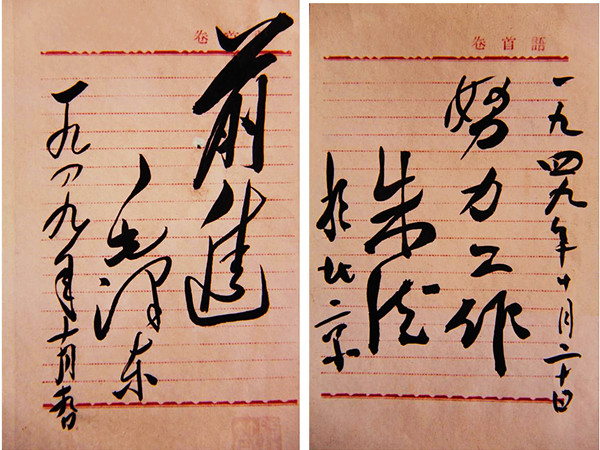 卷首
前進
毛澤东
一九四九年十月
卷首語
一九四九年十月二十日
努力工作
朱德
於北京